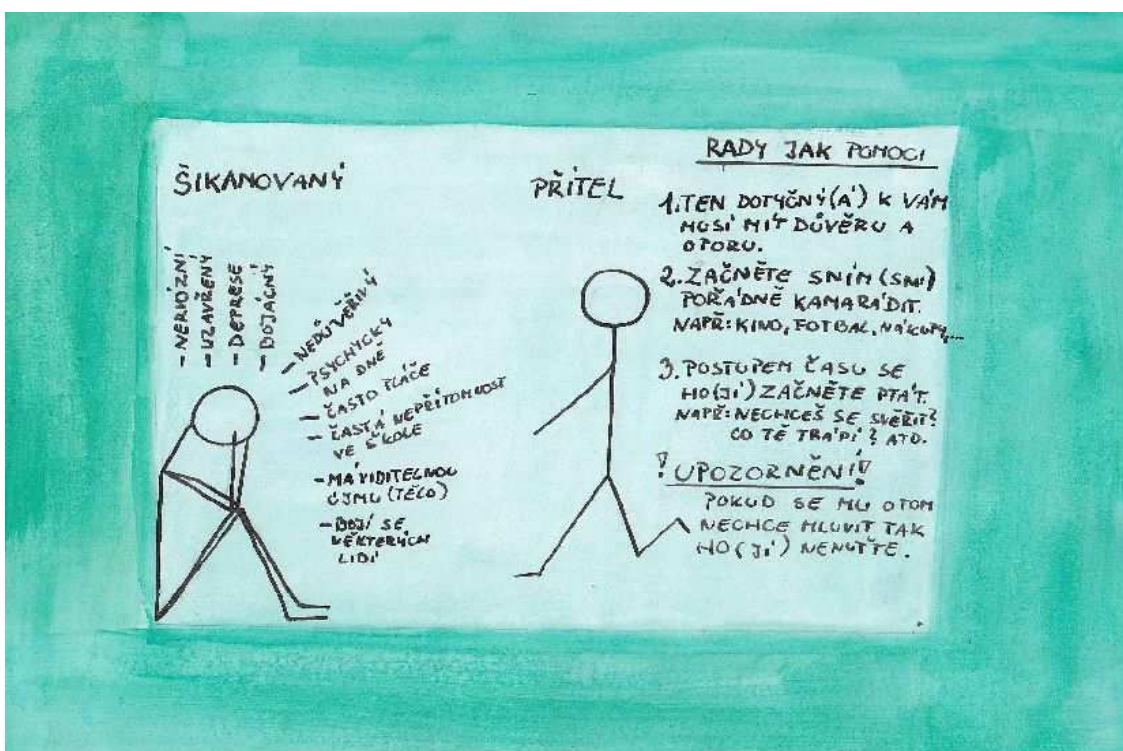 ŠIKANOVANÝ
- NERVÓZNÍ
- UZAVŘENÝ
- DEPRESE
- BOJÁCNÝ
- NEDŮVĚŘIVÝ
- PSYCHYCKY
NA DNĚ
- ČASTO PLÁČE
- ČASTÁ NEPŘÍTOMNOST
VE ŠKOLE
- MÁ VIDITELNOU
ÚJMU (TĚLO)
- BOJÍ SE
NĚKTERÝCH
LIDÍ
PŘÍTEL
RADY JAK POMOCI
1. TEN DOTYČNÝ(Á) K VÁM
MUSÍ MÍT DŮVĚRU A
OPORU.
2. ZAČNĚTE SNÍM (SNÍ)
POŘÁDNĚ KAMARÁDIT.
NAPŘ: KINO, FOTBAL, NÁKUPY,...
3. POSTUPEM ČASU SE
HO(JÍ) ZAČNĚTE PTÁT.
NAPŘ: NECHCEŠ SE SVĚŘIT?
CO TĚ TRÁPÍ? ATD.
! UPOZORNĚNÍ!
POKUD SE MU OTOM
NECHCE MLUVIT TAK
HO(JÍ) NENUŤTE.